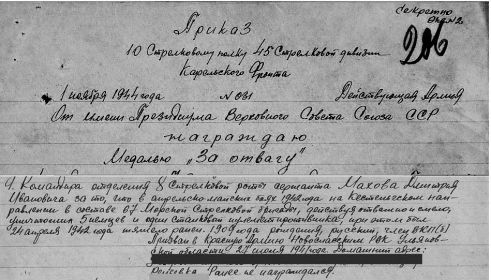 Секретно
Экз. №2
206
Приказ
10 Стрелковому полку 45 Стрелковой дивизии
Карельского Фронта
1 ноября 1944 года № 031 Действующая Армия
От имени Президиума Верховного Совета Союза ССР
награждаю
Медалью "За отвагу"
4. Командира отделения 8 Стрелковой роты сержанта Махова Дмитрия
Ивановича за то, что в апрельско-майских боях 1942 года на Кестеньгском нап-
равлении в составе 67 Морской Стрелковой бригады, действуя отважно и смело,
уничтожил 5 немцев и один станковый пулемет противника, при этом был
24 апреля 1942 года тяжело ранен. 1909 года рождения, русский, член ВКП(б)
Призван в Красную Армию Новоспасским РВК Ульянов-
ской области 27 июня 1941 года. Домашний адрес:
Ранее не награждался.